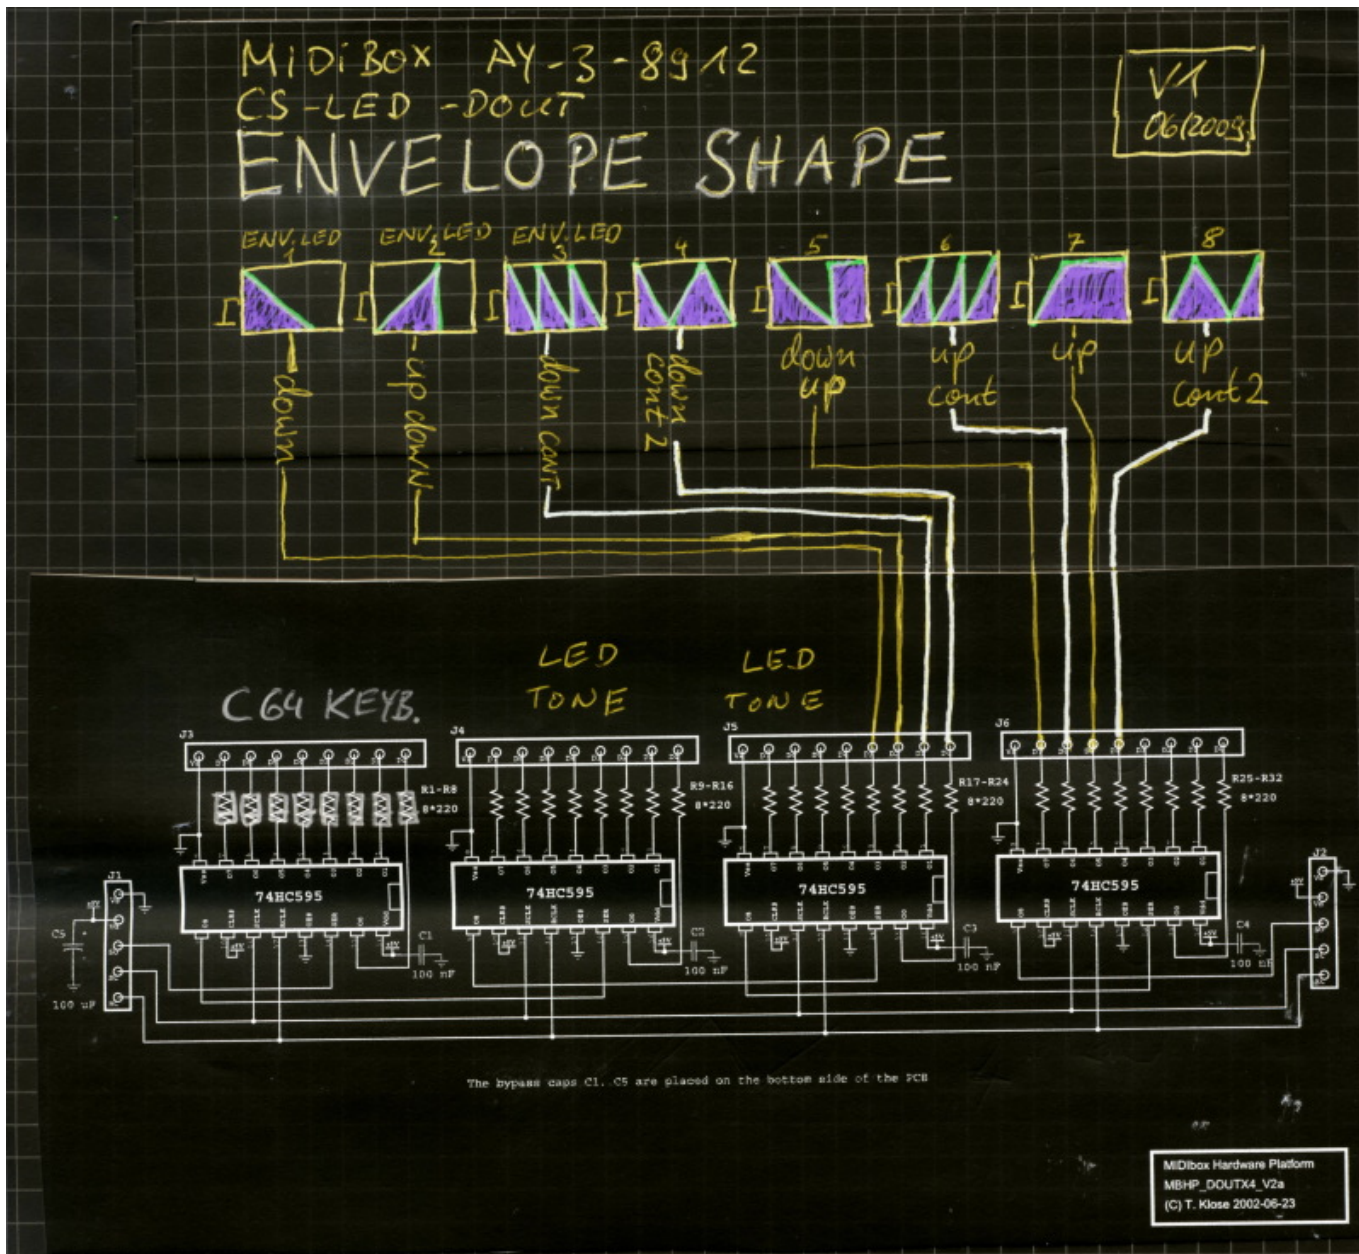 MIDIBOX AY-3-8912
CS-LED-DOUT
ENVELOPE SHAPE
V1
06/2009
ENV.LED 1
ENV.LED 2
ENV.LED 3
4
5
6
7
8
down
up down
down cont
down cont 2
down up
up cont
up
up cont 2
C64 KEYB.
LED TONE
LED TONE
J3
J4
J5
J6
R1-R8
8*220
R9-R16
8*220
R17-R24
8*220
R25-R32
8*220
74HC595
74HC595
74HC595
74HC595
J1
J2
C5
100 uF
C1
100 nF
C2
100 nF
C3
100 nF
C4
100 nF
The bypass caps C1..C5 are placed on the bottom side of the PCB
MIDIbox Hardware Platform
MBHP_DOUTX4_V2a
(C) T. Klose 2002-06-23